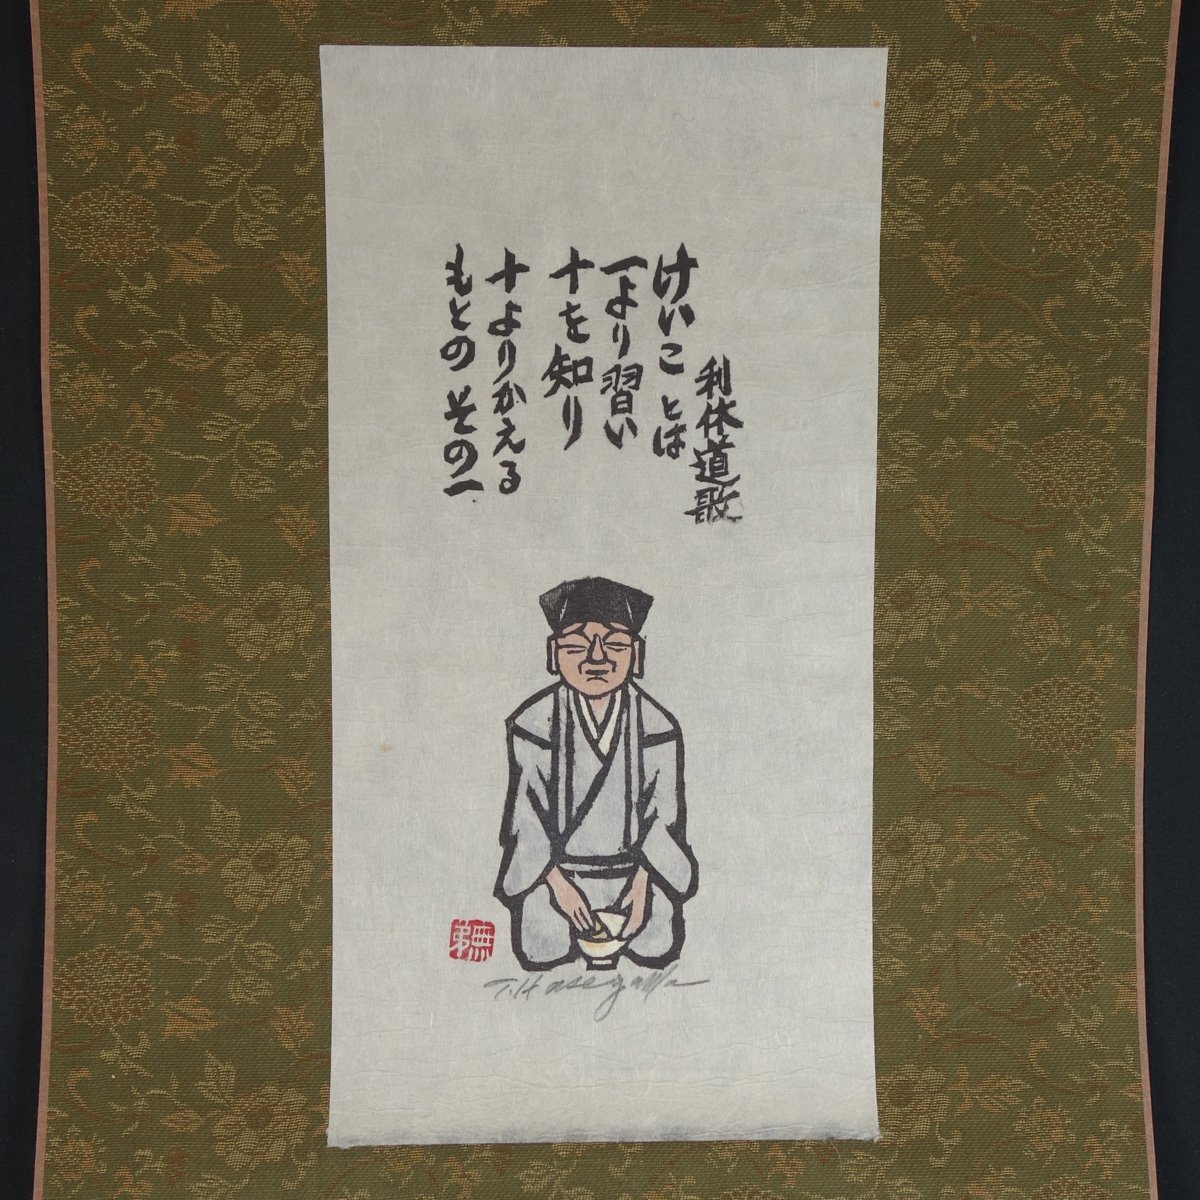 利休道歌
けいことは
一より習い
十を知り
十よりかえる
もとのその一
T.Hasegawa
無弟